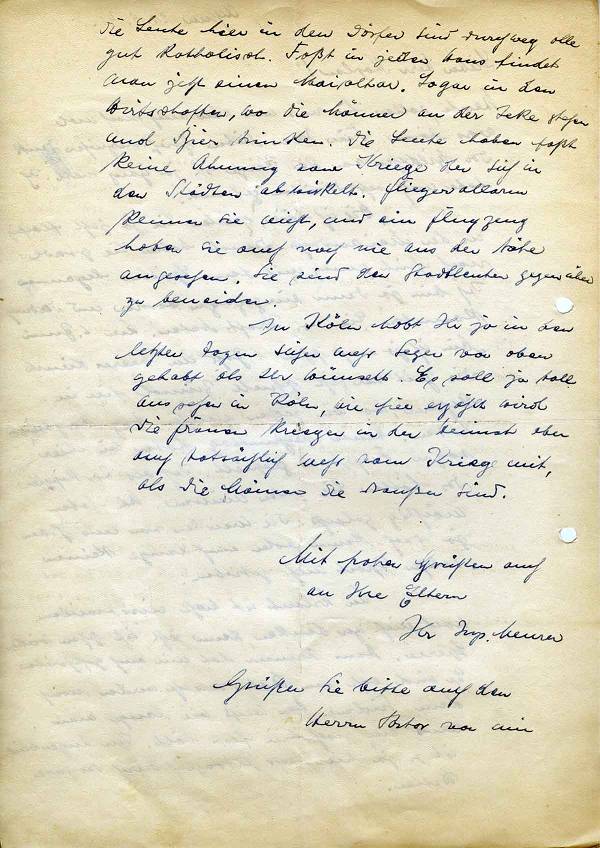 die Leute hier in den Dörfern sind durchweg alle
gut katholisch. Fast in jedem Haus findet
man jetzt einen Maialtar. Sogar in den
Wirtschaften, wo die Männer an der Teke stehen
und Bier trinken. Die Leute haben fast
keine Ahnung vom Kriege der sich in
den Städten abwickelt. Fliegerallarm
kennen sie nicht, und ein Flugzeug
haben sie auch noch nie aus der Nähe
angesehen. Sie sind den Stadtleuten gegenüber
zu beneiden.
In Köln habt Ihr ja in den
letzten Tagen sicher mehr Segen von oben
gehabt als Ihr wünscht. Es soll ja toll
aussehen in Köln, wie hier erzählt wird
die Frauen kriegen in der Heimat aber
auch tatsächlich mehr vom Krieg mit,
als die Männer die draußen sind.
Mit frohen Grüßen auch
an Ihre Eltern
Ihr Meurer
Grüßen Sie bitte auch den
Herrn Pastor von mir